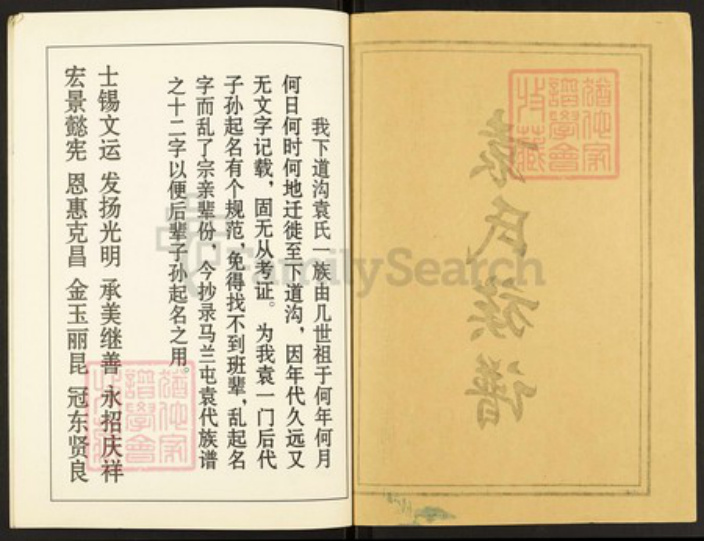 袁氏族谱
我下道沟袁氏一族由几世祖于何年何月
何日何时何地迁徙至下道沟，因年代久远又
无文字记载，固无从考证。为我袁一门后代
子孙起名有个规范，免得找不到班辈，乱起名
字而乱了宗亲辈份，今抄录马兰屯袁代族谱
之十二字以便后辈子孙起名之用。
士锡文运 发扬光明 承美继善 永招庆祥
宏景懿宪 恩惠克昌 金玉丽昆 冠东贤良
FamilySearch